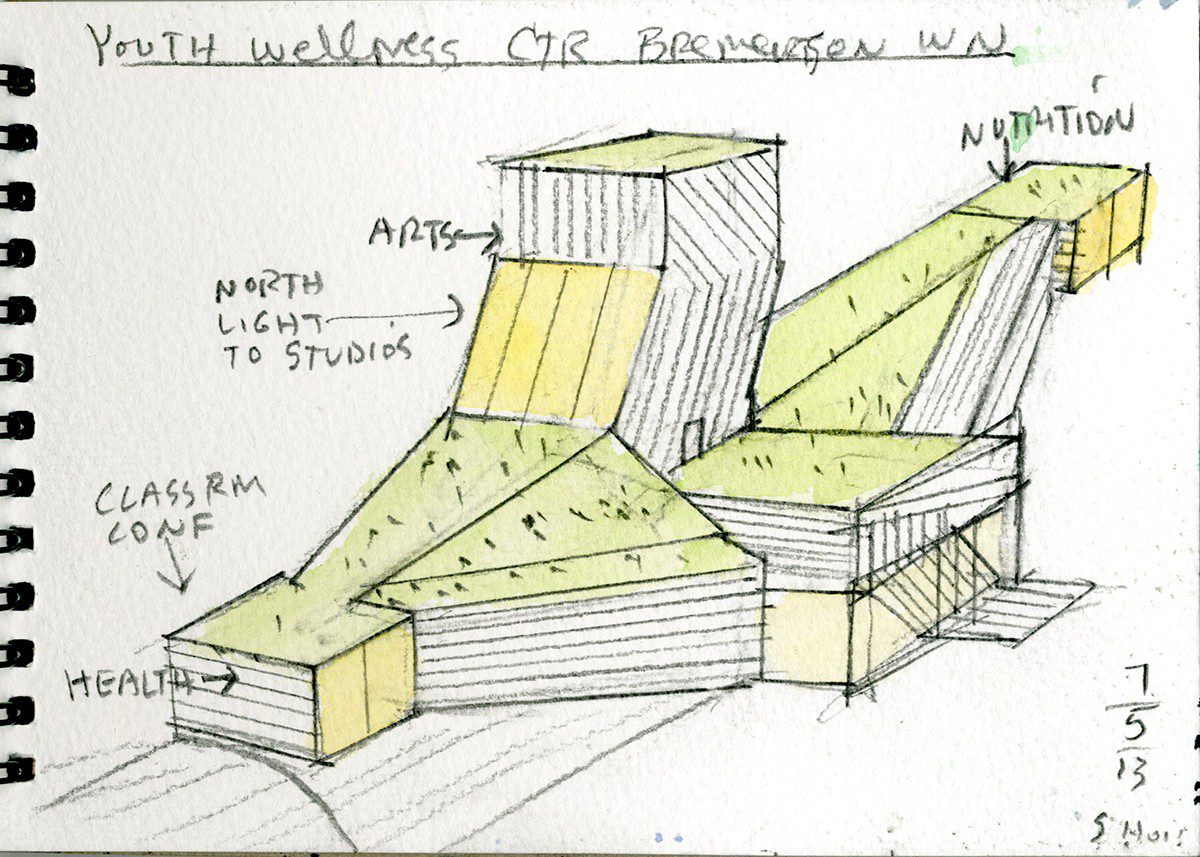 YOUTH WELLNESS CTR BREMERTON WN
NUTRITION
ARTS
NORTH
LIGHT
TO STUDIOS
CLASSRM
CONF
HEALTH
7
5
13